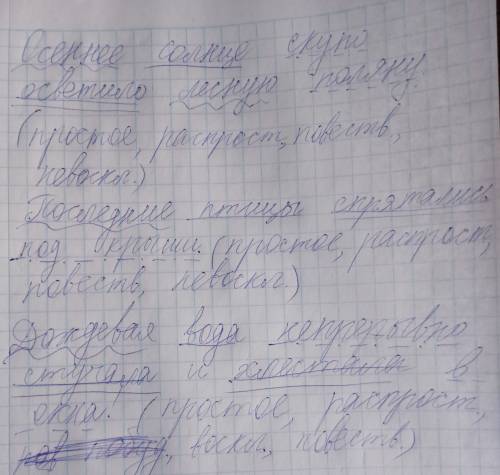 Осеннее солнце скупо
осветило лесную поляну.
(простое, распрост., повеств.,
невоскл.)
Последние птицы спрятались
под крыши. (простое, распрост,
повеств, невоскл.)
Дождевая вода непрерывно
стучала и хлестала в
окна. (простое, распрост,
воскл., повеств.)